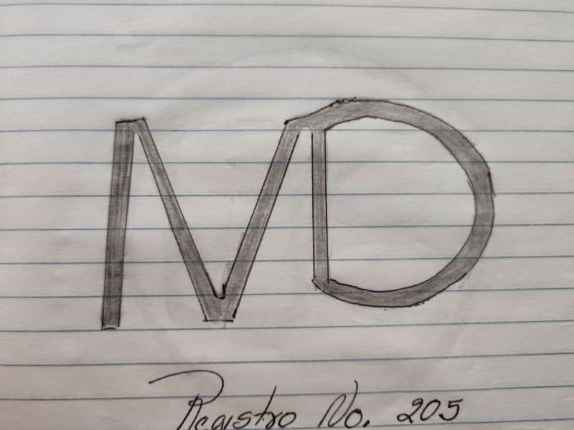 MD
Registro No. 205